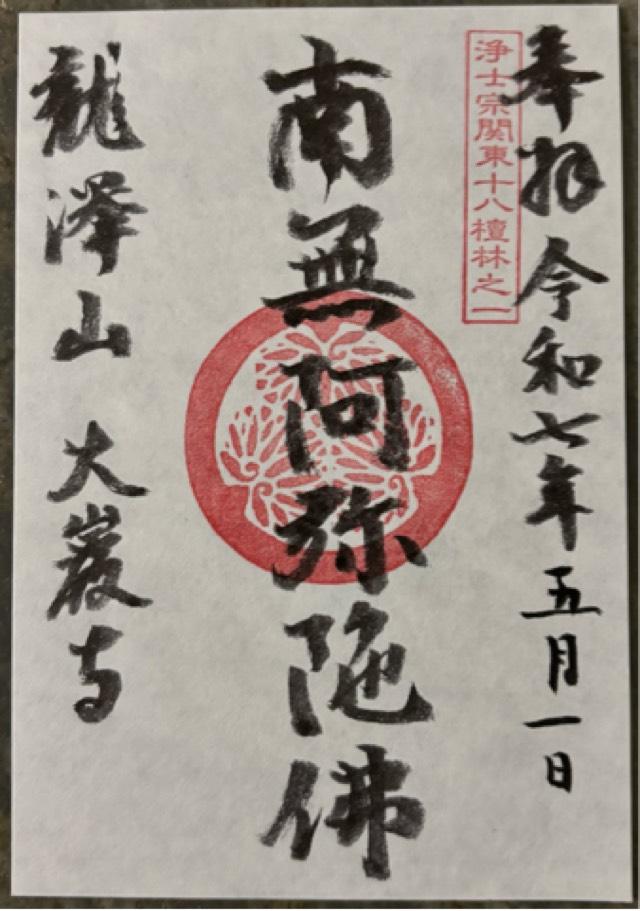 奉拝 令和七年五月一日
浄土宗関東十八檀林之一
南無阿弥陀佛
龍澤山 大巖寺